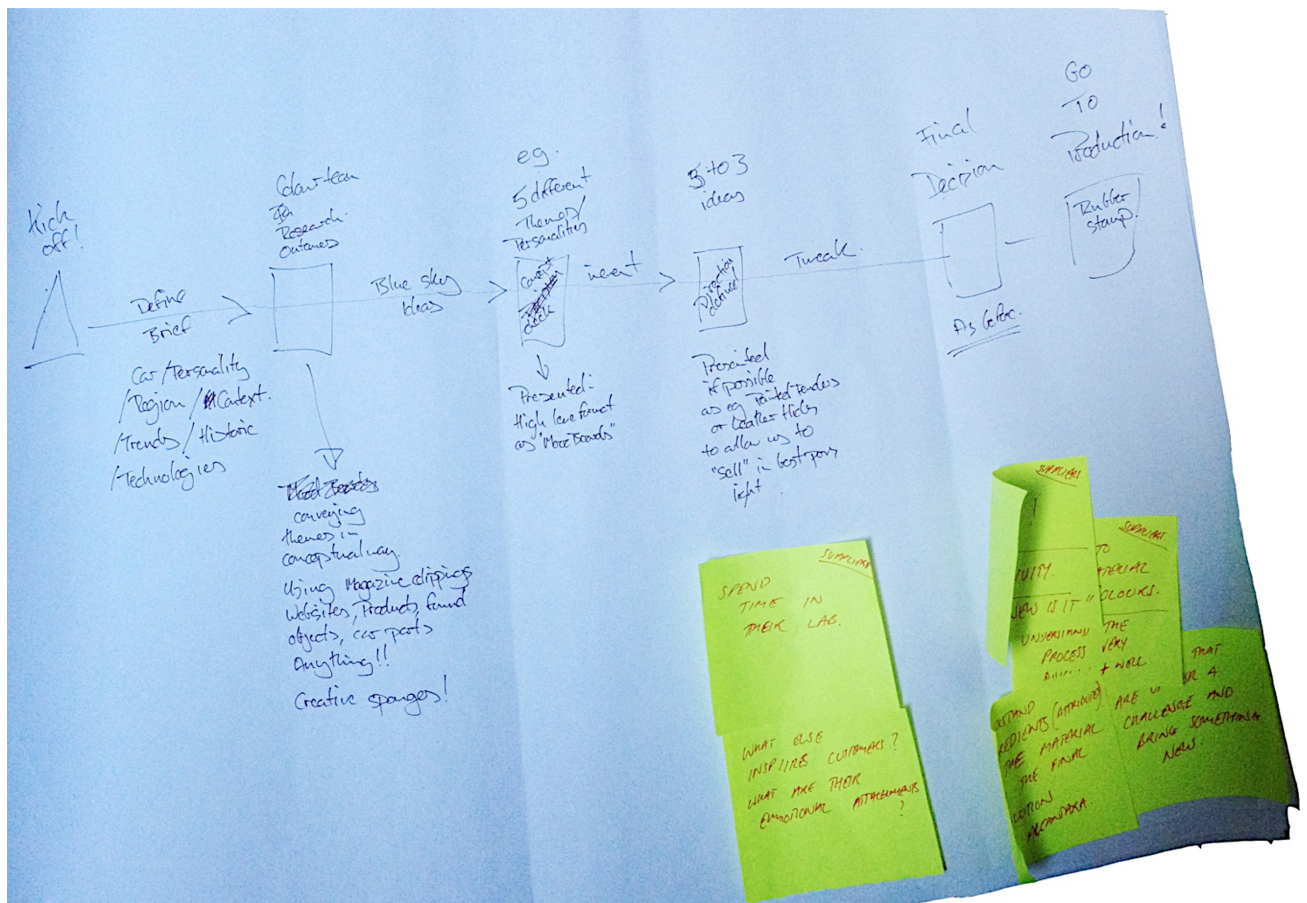 Kick
off!
Define
Brief
Car/Personality
/Region/Context.
/Trends/Historic
/Technologies
Colour team
Research
Outcomes
conveying
themes in
conceptual way.
Using Magazine clippings
Websites, Products, found
objects, car parts
Anything!!
Creative sponges!
Blue sky
Ideas
eg.
5 different
Themes/
Personalities
Concept
deck
Presented:
High level format
as "Mood Boards"
5 to 3
ideas
Direction
defined
Presented
if possible
as eg Painted Fenders
or Leather Hides
to allow us to
"sell" in best poss
light.
Tweak.
Final
Decision
As before.
Go
To
Production!
Rubber
stamp.
SUPPLIERS
SPEND
TIME IN
THEIR LAB.
WHAT ELSE
INSPIRES CUSTOMERS?
WHAT ARE THEIR
EMOTIONAL ATTACHMENTS
?
SUPPLIERS
!
NEW IS IT"
UNDERSTAND THE
PROCESS VERY
WELL
SUPPLIERS
TO
COLOURS.
THAT
ARE
A
CHALLENGE AND
BRING SOMETHING
NEW.
(ATTRIBUTES)
THE MATERIAL
THE FINAL
ALCANTARA.